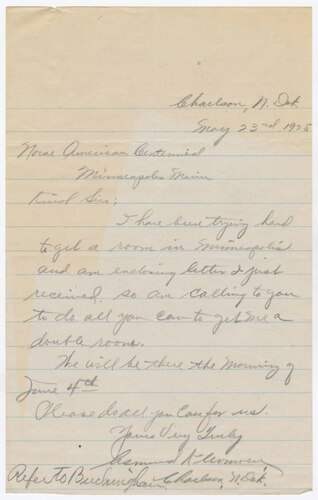 Charlson, N. Dak
May 23rd 1925
Norse American Centennial
Minneapolis Minn
Kind Sirs;
I have been trying hard
to get a room in Minneapolis
and am enclosing letter I just
received, so am calling to you
to do all you can to get me a
double room.
We will be there the Morning of
June 4th
Please do all you can for us.
Yours Very Truly
Charlson, N. Dak.
Refer to Buckingham